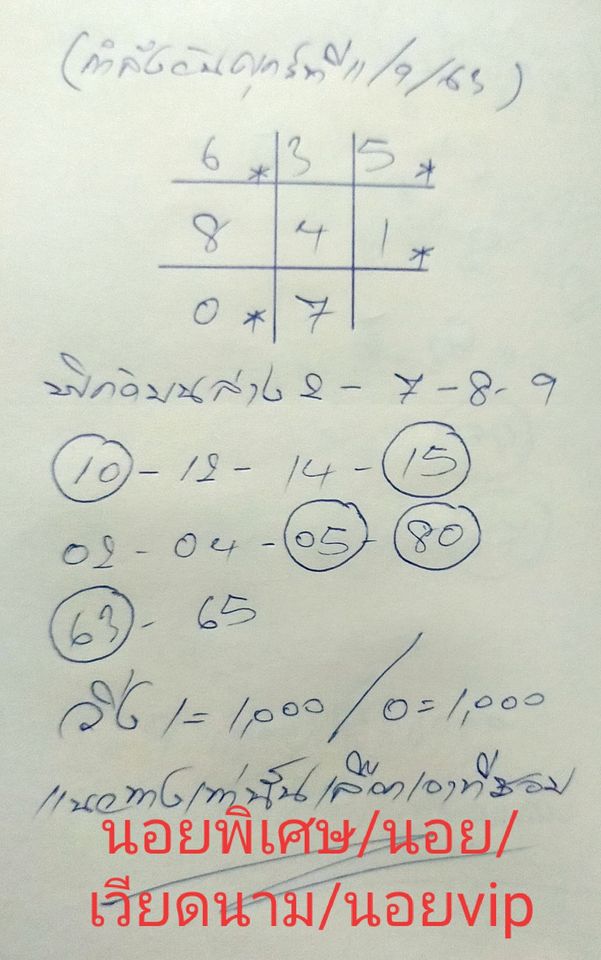 (กำลังวันศุกร์ที่ 11/9/63)
6 * 3 5 *
8 4 1 *
0 * 7
พิกัดบนล่าง 2 - 7 - 8 - 9
10 - 12 - 14 - 15
02 - 04 - 05 - 80
63 - 65
วิ่ง 1 = 1,000 / 0 = 1,000
แนวทางเท่านั้นเลือกเอาที่ชอบ
นอยพิเศษ/นอย/
เวียดนาม/นอยvip